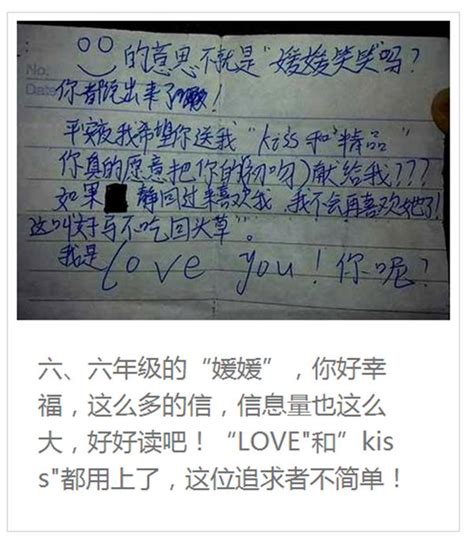 的意思不就是“媛媛笑笑”吗？
No.
Date
你都说出来了！
平安夜我希望你送我“kiss和“精品”
你真的愿意把你的(初吻)献给我???
如果 静回过来喜欢我，我不会再喜欢她了！
这叫好马不吃回头草”。
我是Love you！你呢？
六、六年级的“媛媛”，你好幸
福，这么多的信，信息量也这么
大，好好读吧！“LOVE"和”kis
s"都用上了，这位追求者不简单！